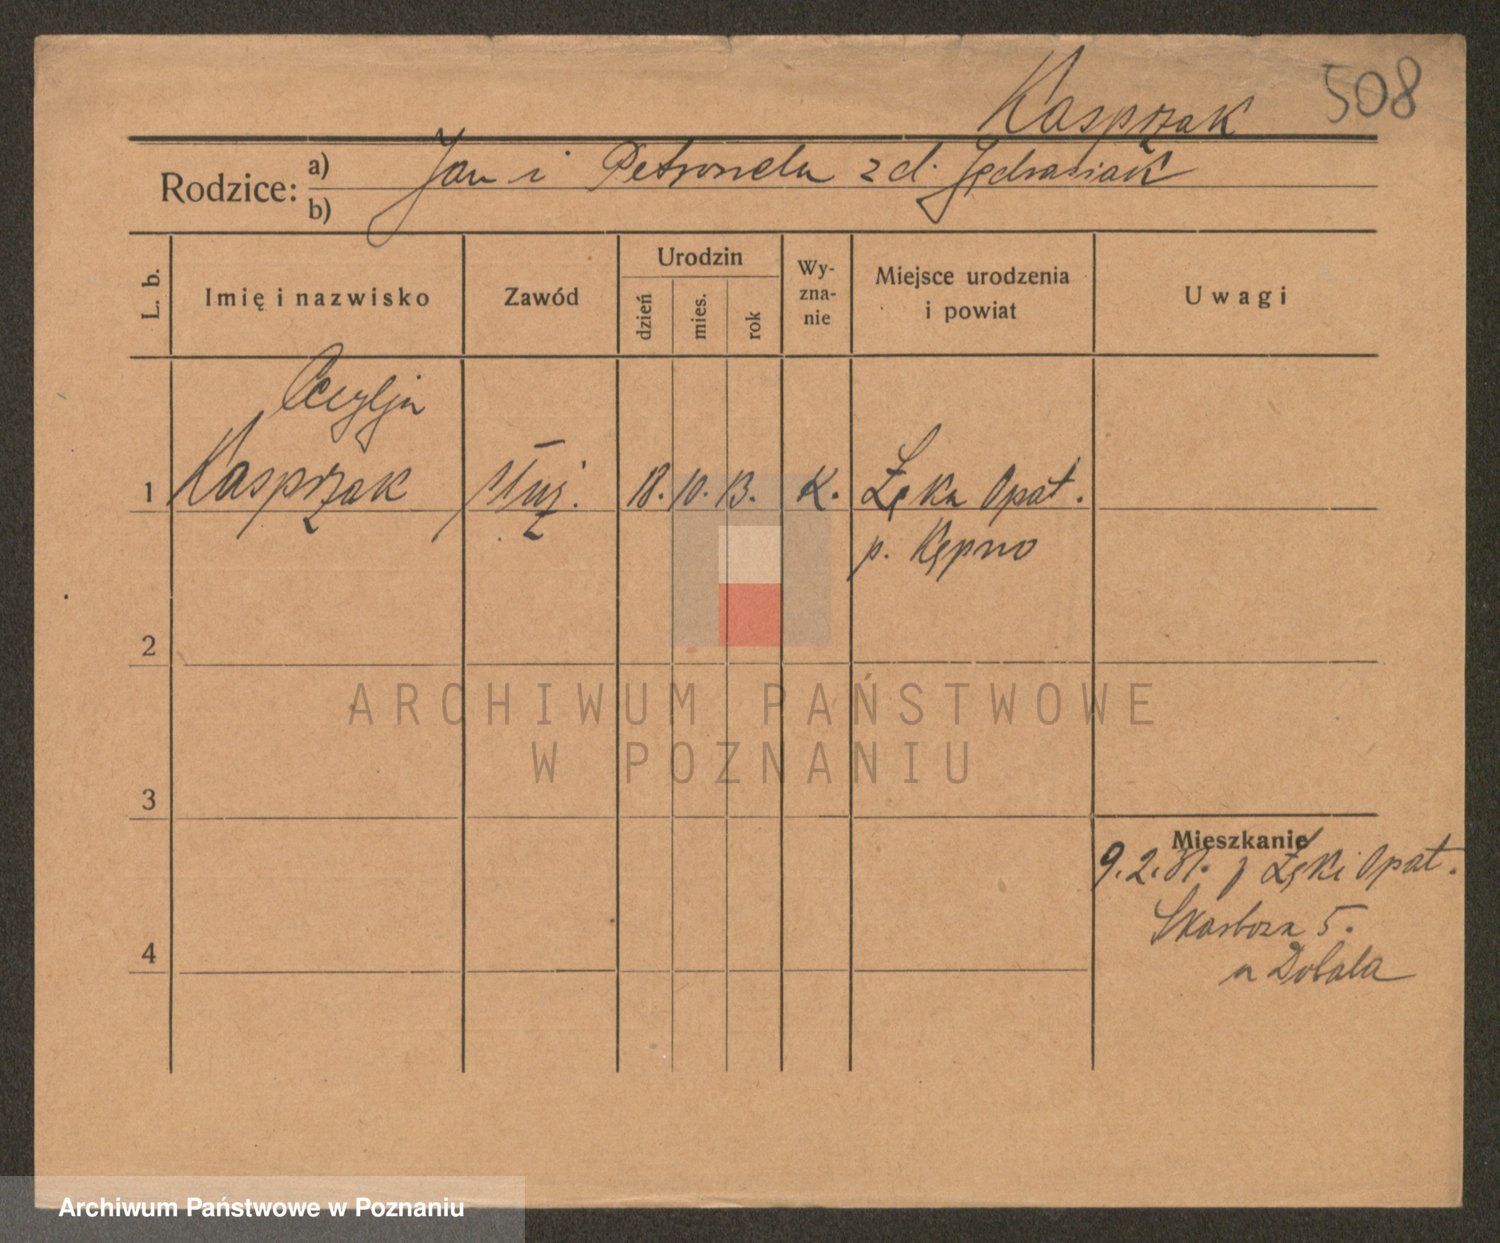 508
Kasprzak
Rodzice: a) Jan i Petronela z d. Jędrasiak
b)
L. b.
Imię i nazwisko
Zawód
Urodzin
dzień
mies.
rok
Wy-
zna-
nie
Miejsce urodzenia
i powiat
Uwagi
Cecylja
1 Kasprzak służ. 18. 10. 13. K. Łęka Opat.
p. Kępno
2
ARCHIWUM PAŃSTWOWE
W POZNANIU
3
Mieszkanie
9.2.31. z Łęki Opat.
Skarbowa 5.
4
u Dobala
Archiwum Państwowe w Poznaniu